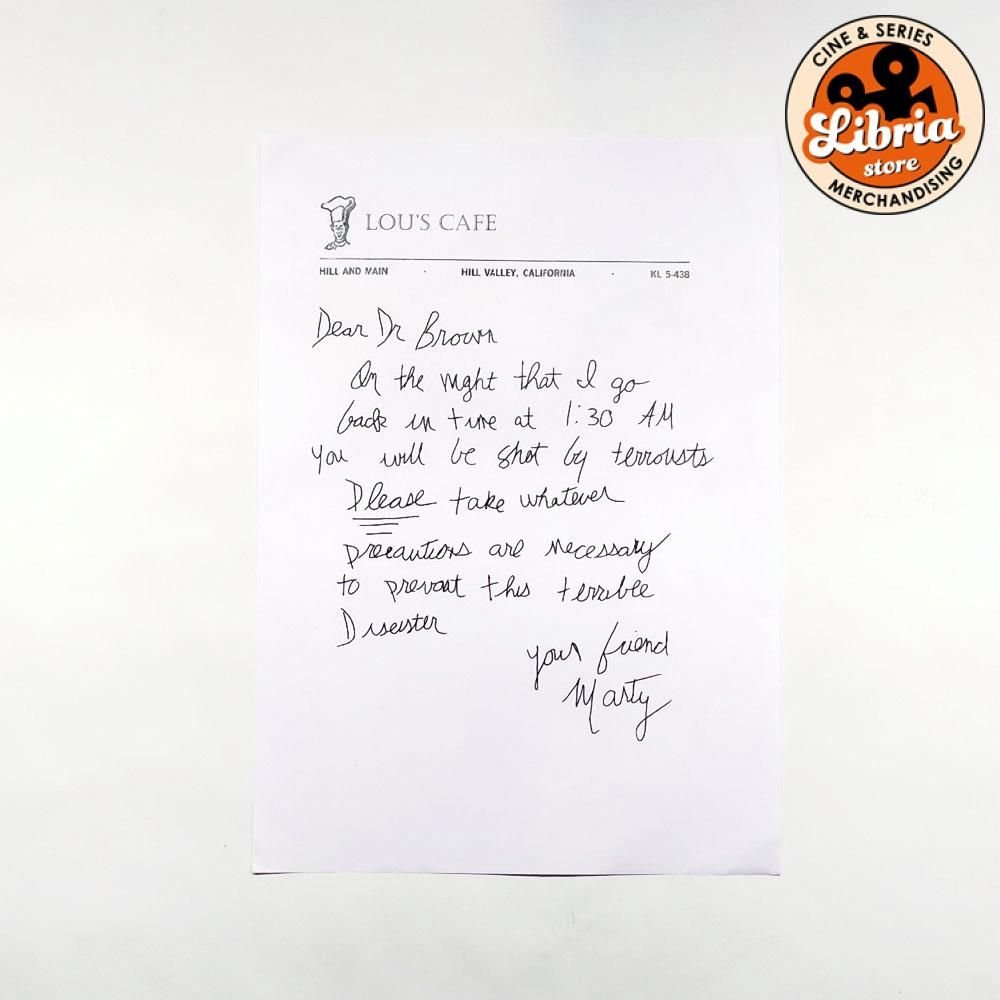 CINE & SERIES
Libria
store
MERCHANDISING
LOU'S CAFE
HILL AND MAIN · HILL VALLEY, CALIFORNIA · KL 5-438
Dear Dr Brown
On the night that I go
back in time at 1:30 AM
you will be shot by terrorists
Please take whatever
precautions are necessary
to prevent this terrible
Disaster
your friend
Marty